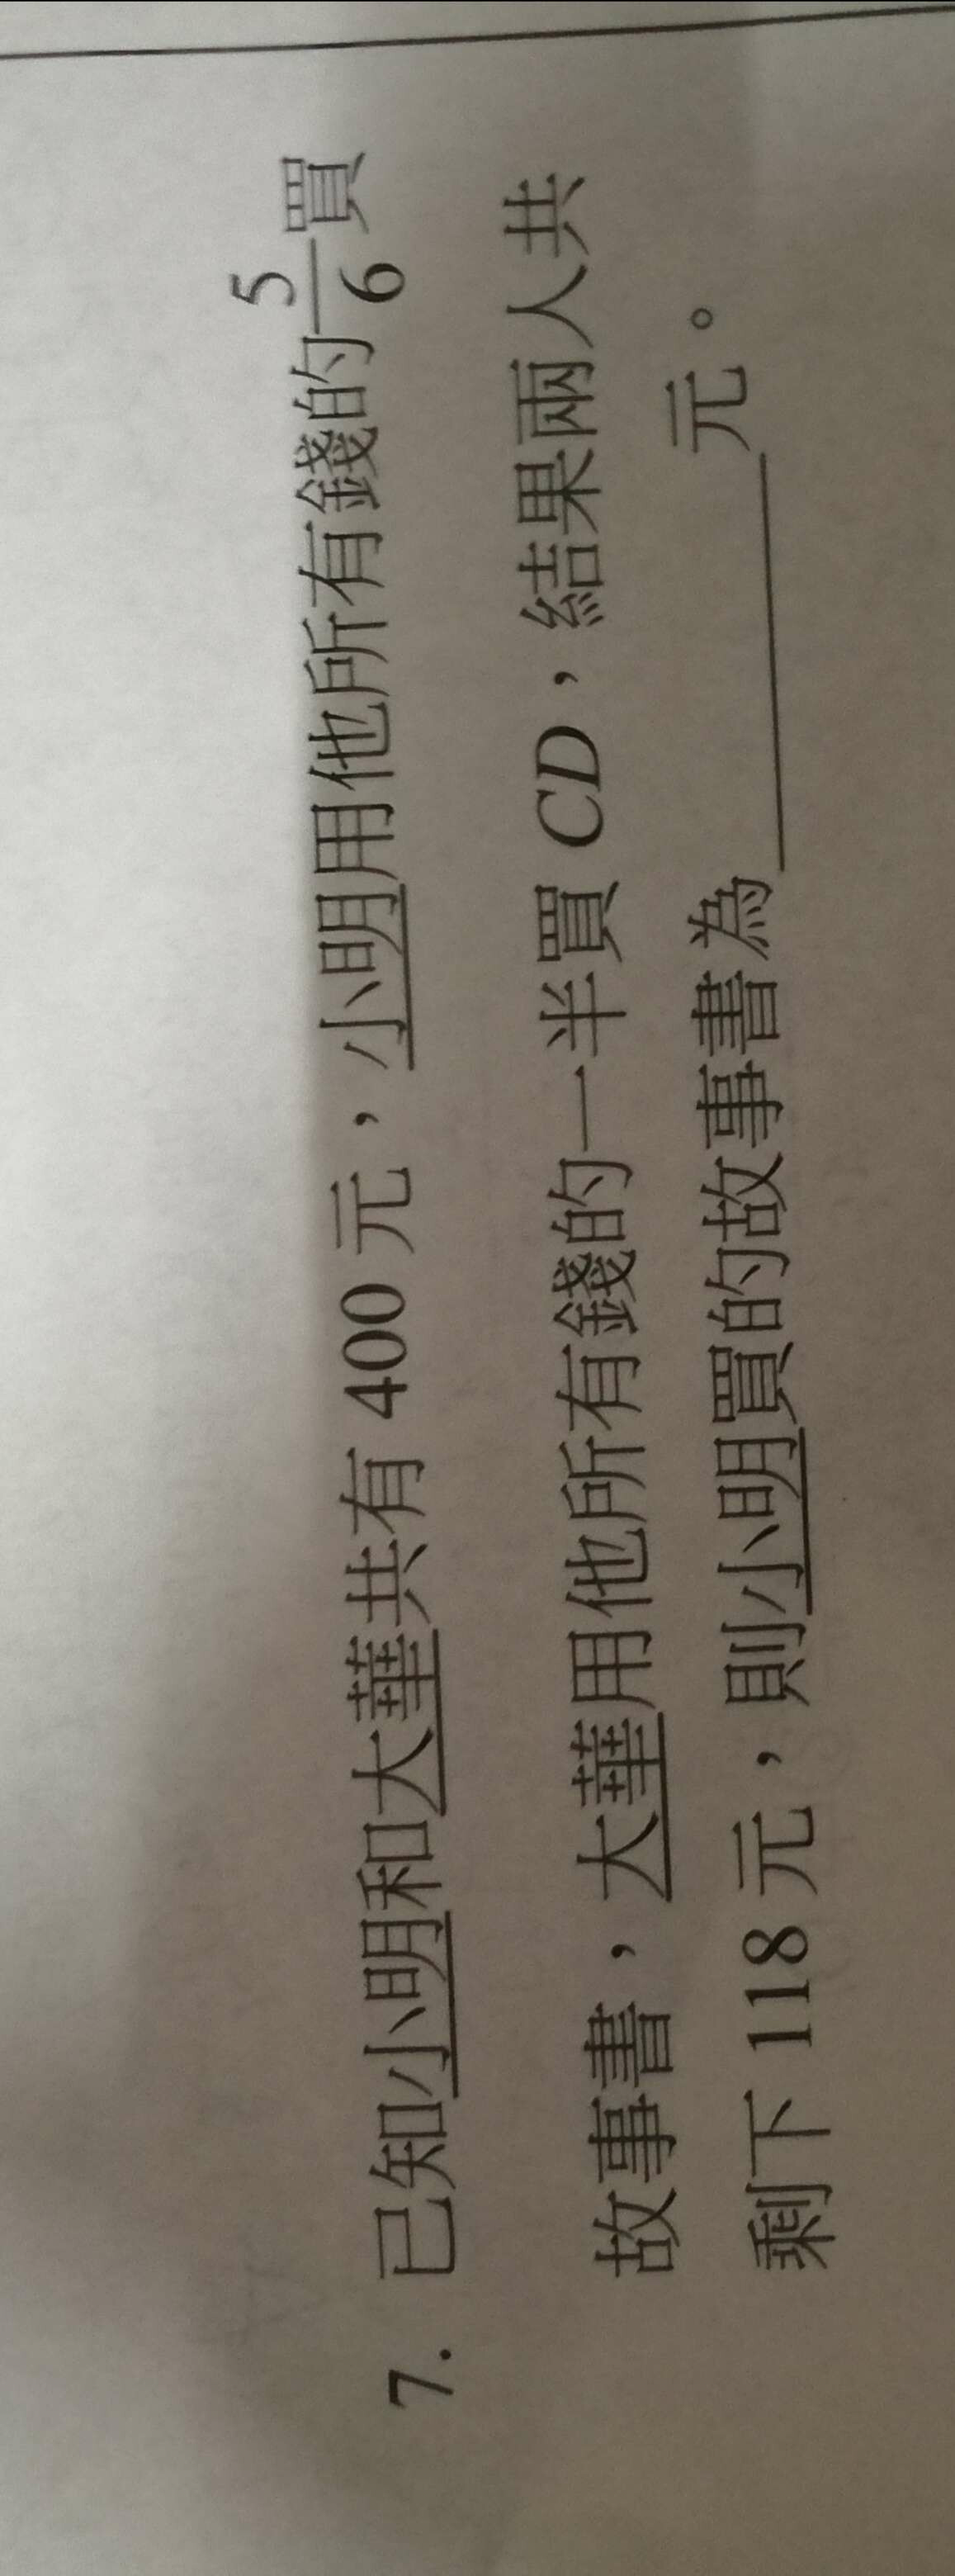 7. 已知小明和大華共有 400 元，小明用他所有錢的5/6買
故事書，大華用他所有錢的一半買 CD，結果兩人共
剩下 118 元，則小明買的故事書為________元。